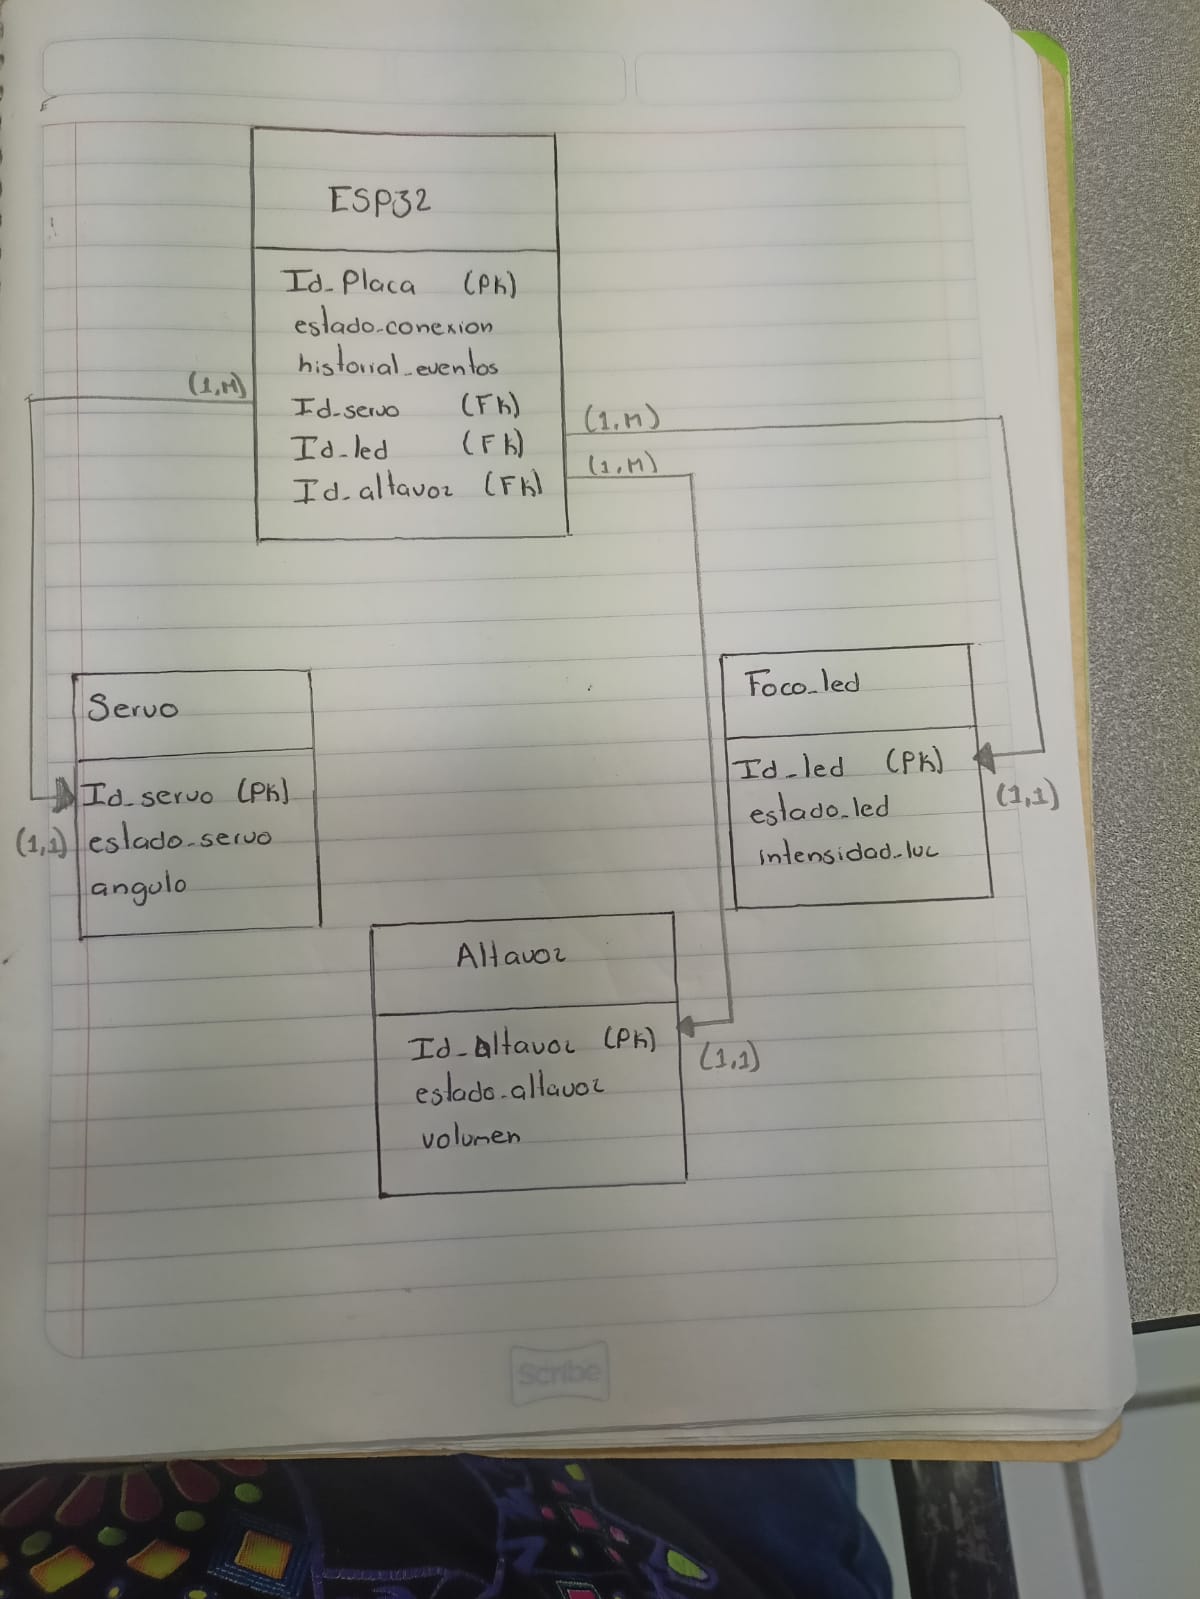 ESP32
Id_Placa (PK)
estado_conexion
historial_eventos
Id_servo (FK)
Id_led (FK)
Id_altavoz (FK)
(1,M)
(1,M)
(1,M)
Servo
Id_servo (PK)
estado_servo
angulo
(1,1)
Foco_led
Id_led (PK)
estado_led
intensidad_luz
(1,1)
Altavoz
Id_Altavoz (PK)
estado_altavoz
volumen
(1,1)
Scribe